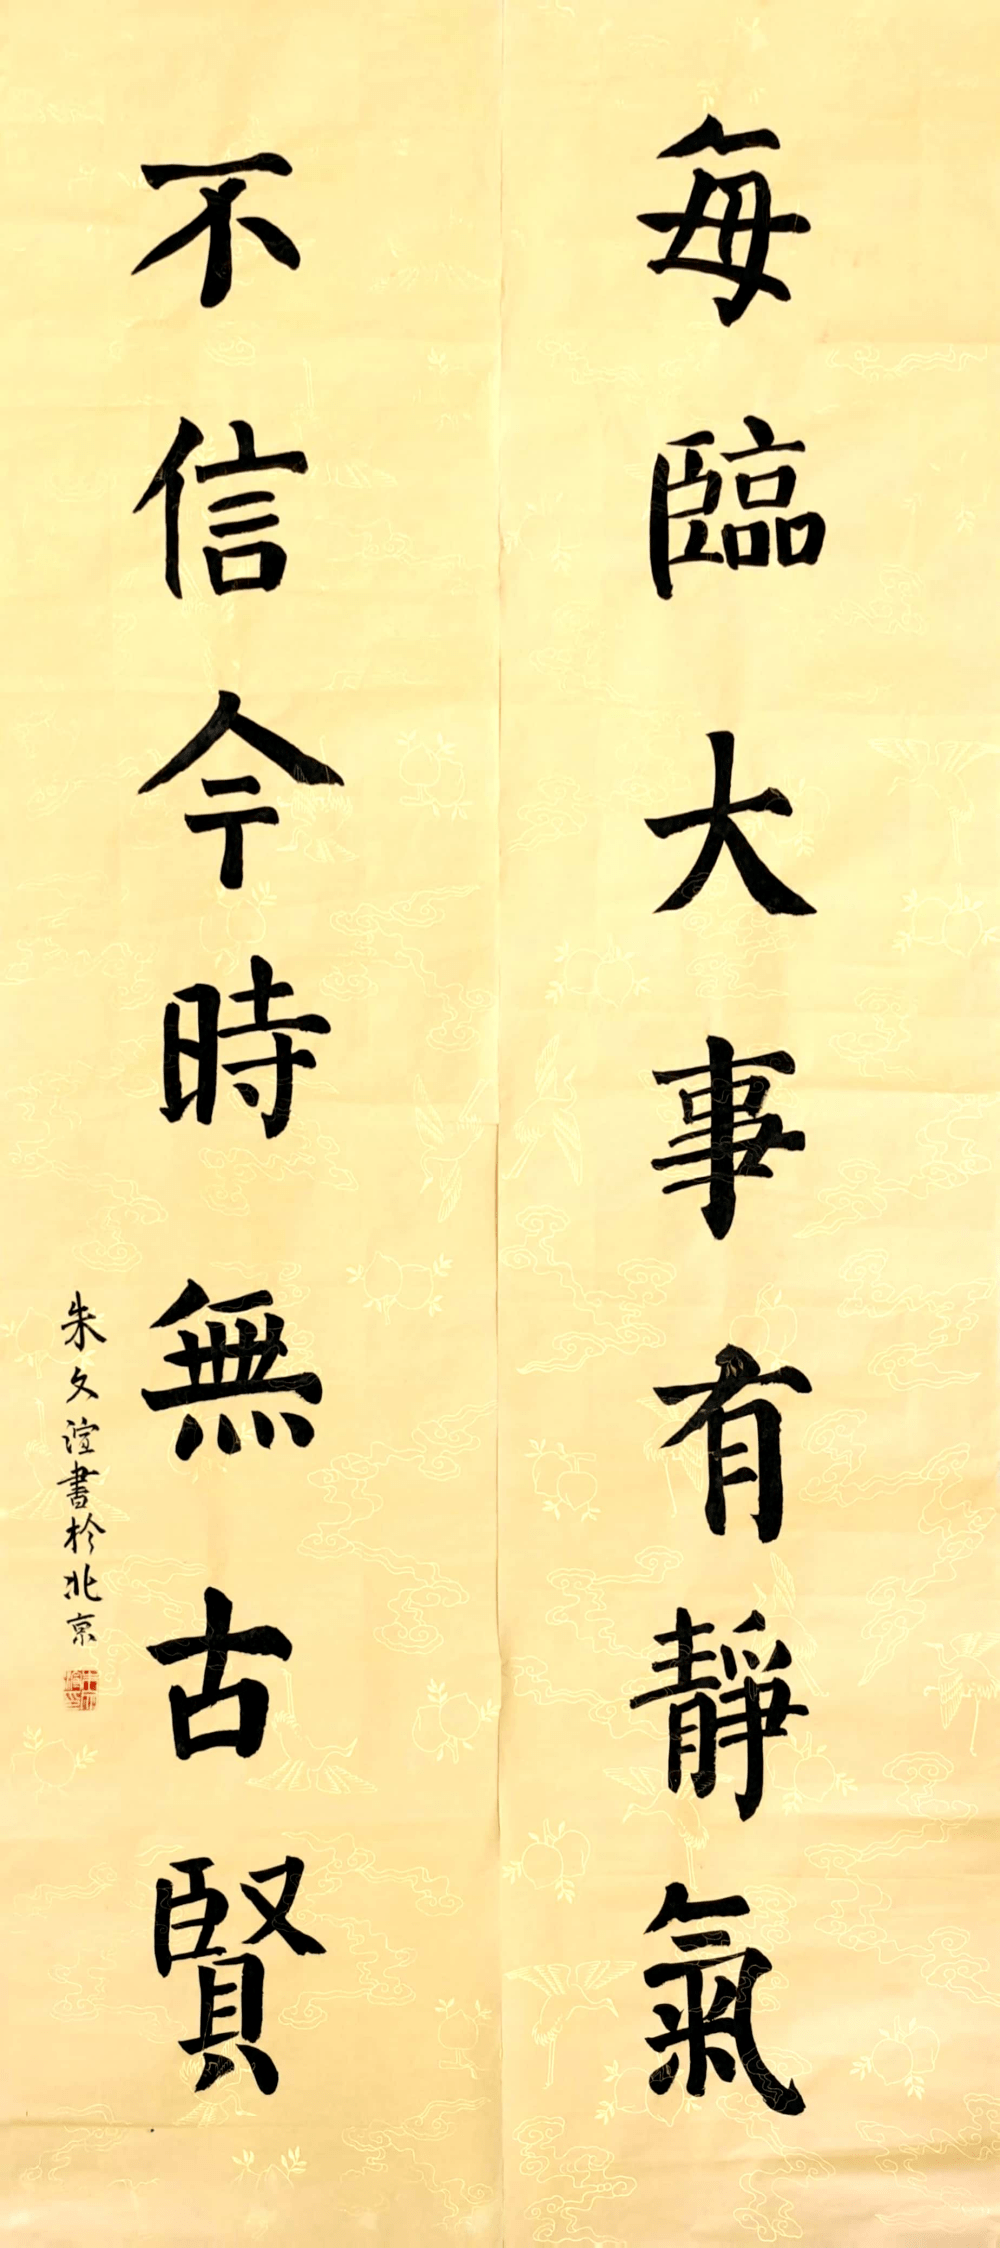 每臨大事有靜氣
不信今時無古賢
朱文渲書於北京